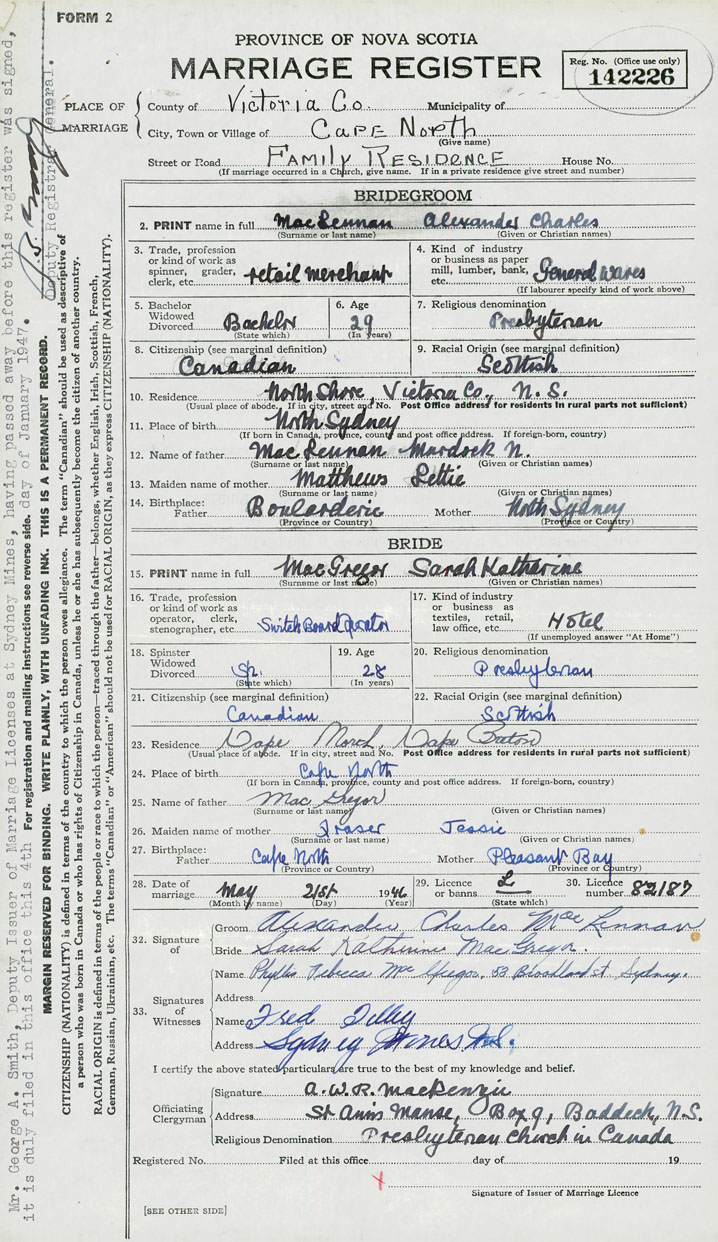 FORM 2
PROVINCE OF NOVA SCOTIA
MARRIAGE REGISTER
Reg. No. (Office use only)
142226
PLACE OF MARRIAGE
County of Victoria Co. Municipality of
City, Town or Village of CAPE NORTH
(Give name)
Street or Road FAMILY RESIDENCE House No.
(If marriage occurred in a Church, give name. If in a private residence give street and number)
BRIDEGROOM
2. PRINT name in full MacLennan Alexander Charles
(Surname or last name) (Given or Christian names)
3. Trade, profession or kind of work as spinner, grader, clerk, etc. retail merchant
4. Kind of industry or business as paper mill, lumber, bank, etc. General Wares
(If labourer specify kind of work above)
5. Bachelor Widowed Divorced Bachelor
(State which)
6. Age 29
(In years)
7. Religious denomination
Presbyterian
8. Citizenship (see marginal definition)
Canadian
9. Racial Origin (see marginal definition)
Scottish
10. Residence North Shore, Victoria Co., N. S.
(Usual place of abode. If in city, street and No. Post Office address for residents in rural parts not sufficient)
11. Place of birth North Sydney
(If born in Canada, province, county and post office address. If foreign-born, country)
12. Name of father MacLennan Murdock N.
(Surname or last name) (Given or Christian names)
13. Maiden name of mother Matthews Lettie
(Surname or last name) (Given or Christian names)
14. Birthplace: Father Boularderie Mother North Sydney
(Province or Country) (Province or Country)
BRIDE
15. PRINT name in full MacGregor Sarah Katharine
(Surname or last name) (Given or Christian names)
16. Trade, profession or kind of work as operator, clerk, stenographer, etc. Switch Board Operator
17. Kind of industry or business as textiles, retail, law office, etc. Hotel
(If unemployed answer "At Home")
18. Spinster Widowed Divorced Sp.
(State which)
19. Age 28
(In years)
20. Religious denomination
Presbyterian
21. Citizenship (see marginal definition)
Canadian
22. Racial Origin (see marginal definition)
Scottish
23. Residence Cape North, Cape Breton
(Usual place of abode. If in city, street and No. Post Office address for residents in rural parts not sufficient)
24. Place of birth Cape North
(If born in Canada, province, county and post office address. If foreign-born, country)
25. Name of father Mac Gregor
(Surname or last name) (Given or Christian names)
26. Maiden name of mother Fraser Jessie
(Surname or last name) (Given or Christian names)
27. Birthplace: Father Cape North Mother Pleasant Bay
(Province or Country) (Province or Country)
28. Date of marriage May 21st 1946
(Month by name) (Day) (Year)
29. Licence or banns L
(State which)
30. Licence number 82187
32. Signature of
Groom Alexander Charles MacLennan
Bride Sarah Katherine MacGregor.
33. Signatures of Witnesses
Name Phyllis Rebecca MacGregor, 53 St. Sydney.
Address
Name Fred Tilley
Address Sydney Mines N.S.
I certify the above stated particulars are true to the best of my knowledge and belief.
Officiating Clergyman
Signature A. W. R. MacKenzie
Address St Ann's Manse, Box 9, Baddeck, N.S.
Religious Denomination Presbyterian Church in Canada
Registered No. Filed at this office day of 19
X
Signature of Issuer of Marriage Licence
[SEE OTHER SIDE]
Mr. George A. Smith, Deputy Issuer of Marriage Licenses at Sydney Mines, having passed away before this register was signed,
it is duly filed in this office this 4th day of January 1947.
Deputy Registrar General.
For registration and mailing instructions see reverse side.
MARGIN RESERVED FOR BINDING. WRITE PLAINLY, WITH UNFADING INK. THIS IS A PERMANENT RECORD.
CITIZENSHIP (NATIONALITY) is defined in terms of the country to which the person owes allegiance. The term "Canadian" should be used as descriptive of
a person who was born in Canada or who has rights of Citizenship in Canada, unless he or she has subsequently become the citizen of another country.
RACIAL ORIGIN is defined in terms of the people or race to which the person—traced through the father—belongs, whether English, Irish, Scottish, French,
German, Russian, Ukrainian, etc. The terms "Canadian" or "American" should not be used for RACIAL ORIGIN, as they express CITIZENSHIP (NATIONALITY).